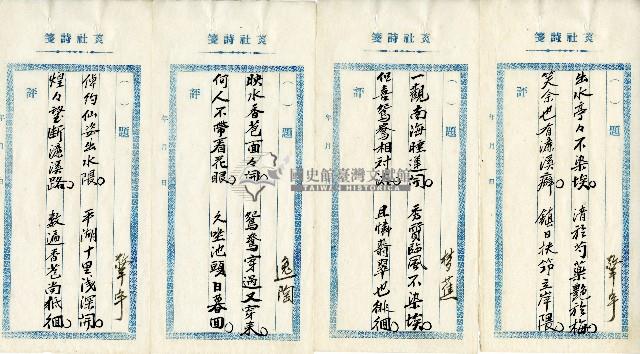 箋詩社菼
（ ）題
出水亭々不染埃。清於芍藥艷於梅。
笑余也有濂溪癖。鎮日扶筇立岸隈。
肇宇
評
年 月 日
箋詩社菼
（ ）題
一觀南海睡蓮開。秀質臨風不染埃。
但喜鴛鴦相對。且憐翡翠也徘徊。
梦蕉
評
年 月 日
箋詩社菼
（ ）題
映水香苞面々開。鴛鴦穿過又穿來。
何人不帶看花眼。久坐池頭日暮回。
逸陰
評
年 月 日
箋詩社菼
（ ）題
倬約仙姿出水隈。平湖十里浅深開。
煌々望斷濂溪路。數遍香苞尚低徊。
肇宇
評
年 月 日
國史館臺灣文獻館
TAIWAN HISTORICA